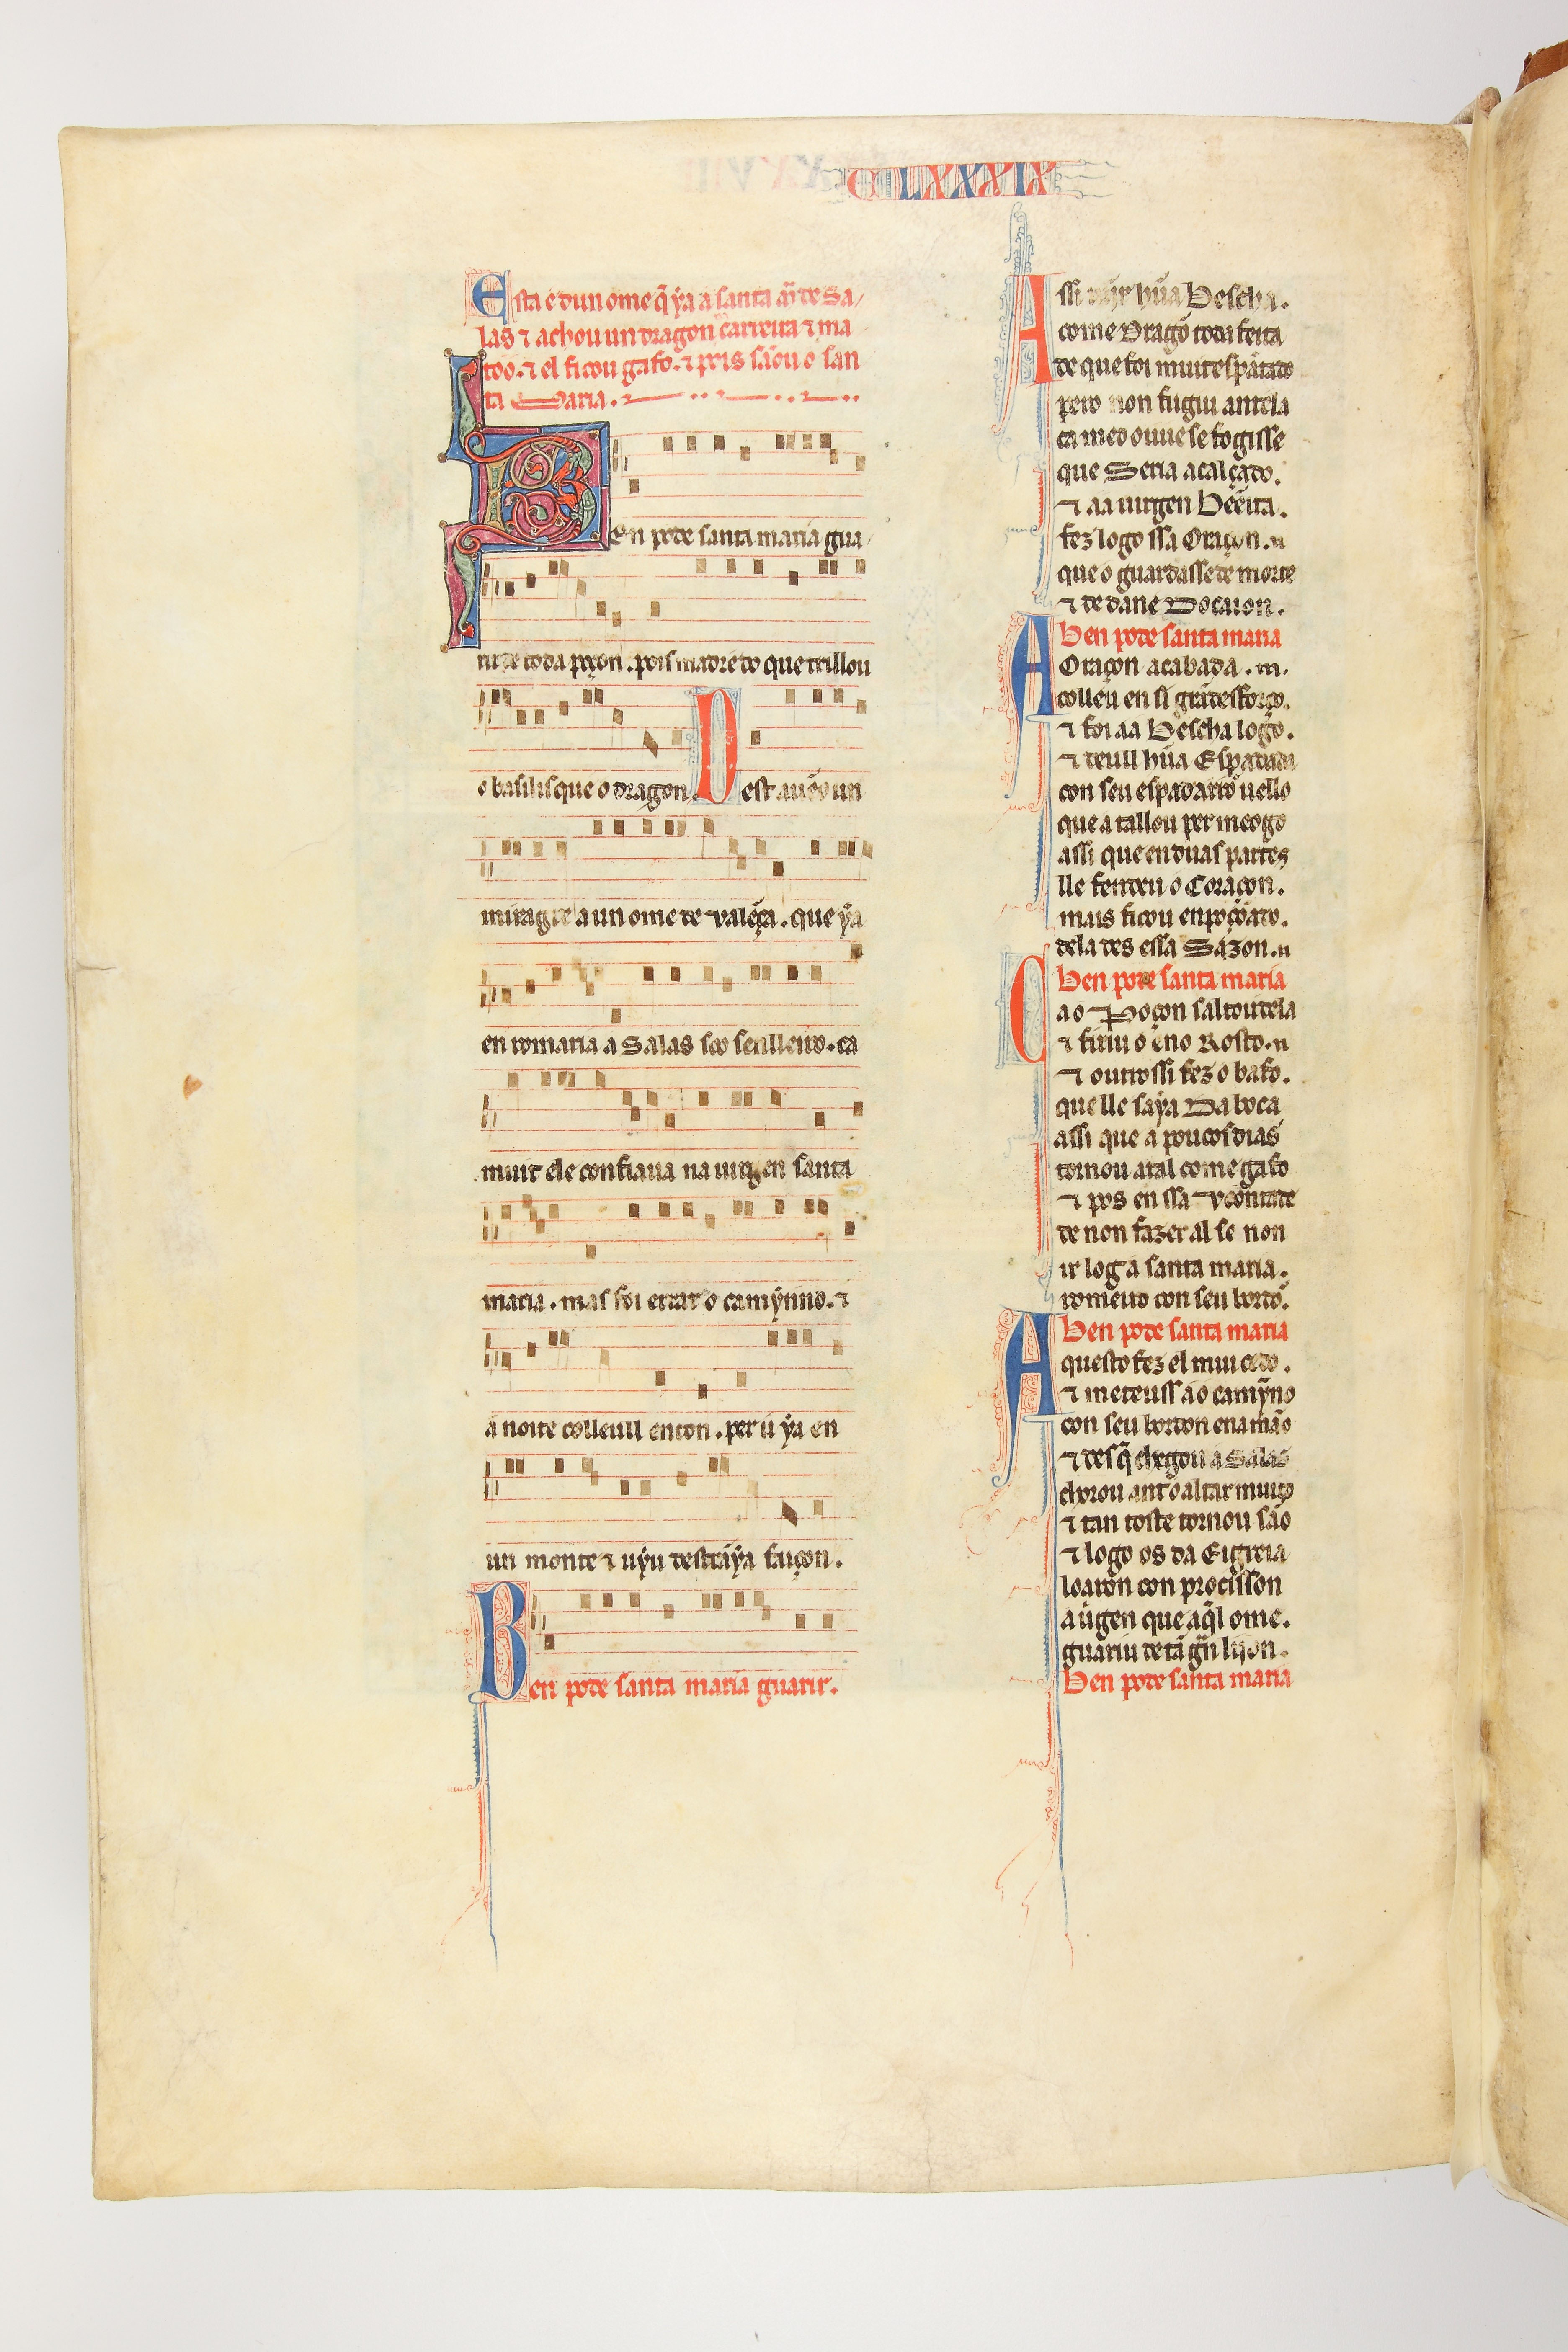 CLXXXIX
Esta e dun ome q̃ ya a santa m̃ de Sa/
las ⁊ achou un dragon na carreira ⁊ ma
too. ⁊ el ficou gafo. ⁊ pois sãou o san
ta Maria.
Ben pode santa maria gua/
rir de toda poçon. pois madre do que trillou
o basilisque o dragon. Dest auẽo un
miragre a un ome de valẽça. que ya
en romaria a Salas soo senlleiro. ca
muit ele confiaua na uirgen santa
maria. mas foi errar o camynno. ⁊
a noite colleull enton. per u ya en
un monte ⁊ uyu destrãya faiçon.
Ben pode santa maria guarir.
Assi hũa Bescha.
come Dragõ toda feita
de que foi muit espãtado
pero non fugiu antela
ca med ouue se fogisse
que Seria acalçado.
⁊ aa uirgen Bẽeita.
fez logo ssa Oraçon.
que o guardasse de morte
⁊ de dane Docaion.
Ben pode santa maria
A Oraçon acabada.
colleu en si grãdesforço.
⁊ foi aa Bescha logo.
⁊ deull hũa Espadada
con seu espadarro uello
que a tallou per meogo
assi que en duas partes
lle fendeu o Coraçon.
mais ficou enpoçõado.
dela des essa Sazon.
Ben pode santa maria
Ca o Poçon saltou dela
⁊ firiu o ẽno Rosto.
⁊ outrossi fez o bafo.
que lle saya Da boca
assi que a poucos dias
tornou atal come gafo
⁊ pos en ssa voontade
de non fazer al se non
ir log a santa maria.
romeiro con seu bordõ.
Ben pode santa maria
Aquesto fez el mui cedo.
⁊ meteuss ao camyno
con seu bordon ena mão
⁊ des q̃ chegou a Salas
chorou ant o altar muito
⁊ tan toste tornou são
⁊ logo os da Eigreia
loaron con procisson
a uirgen que aq̃l ome.
guariu de tã grã lijon.
Ben pode santa maria